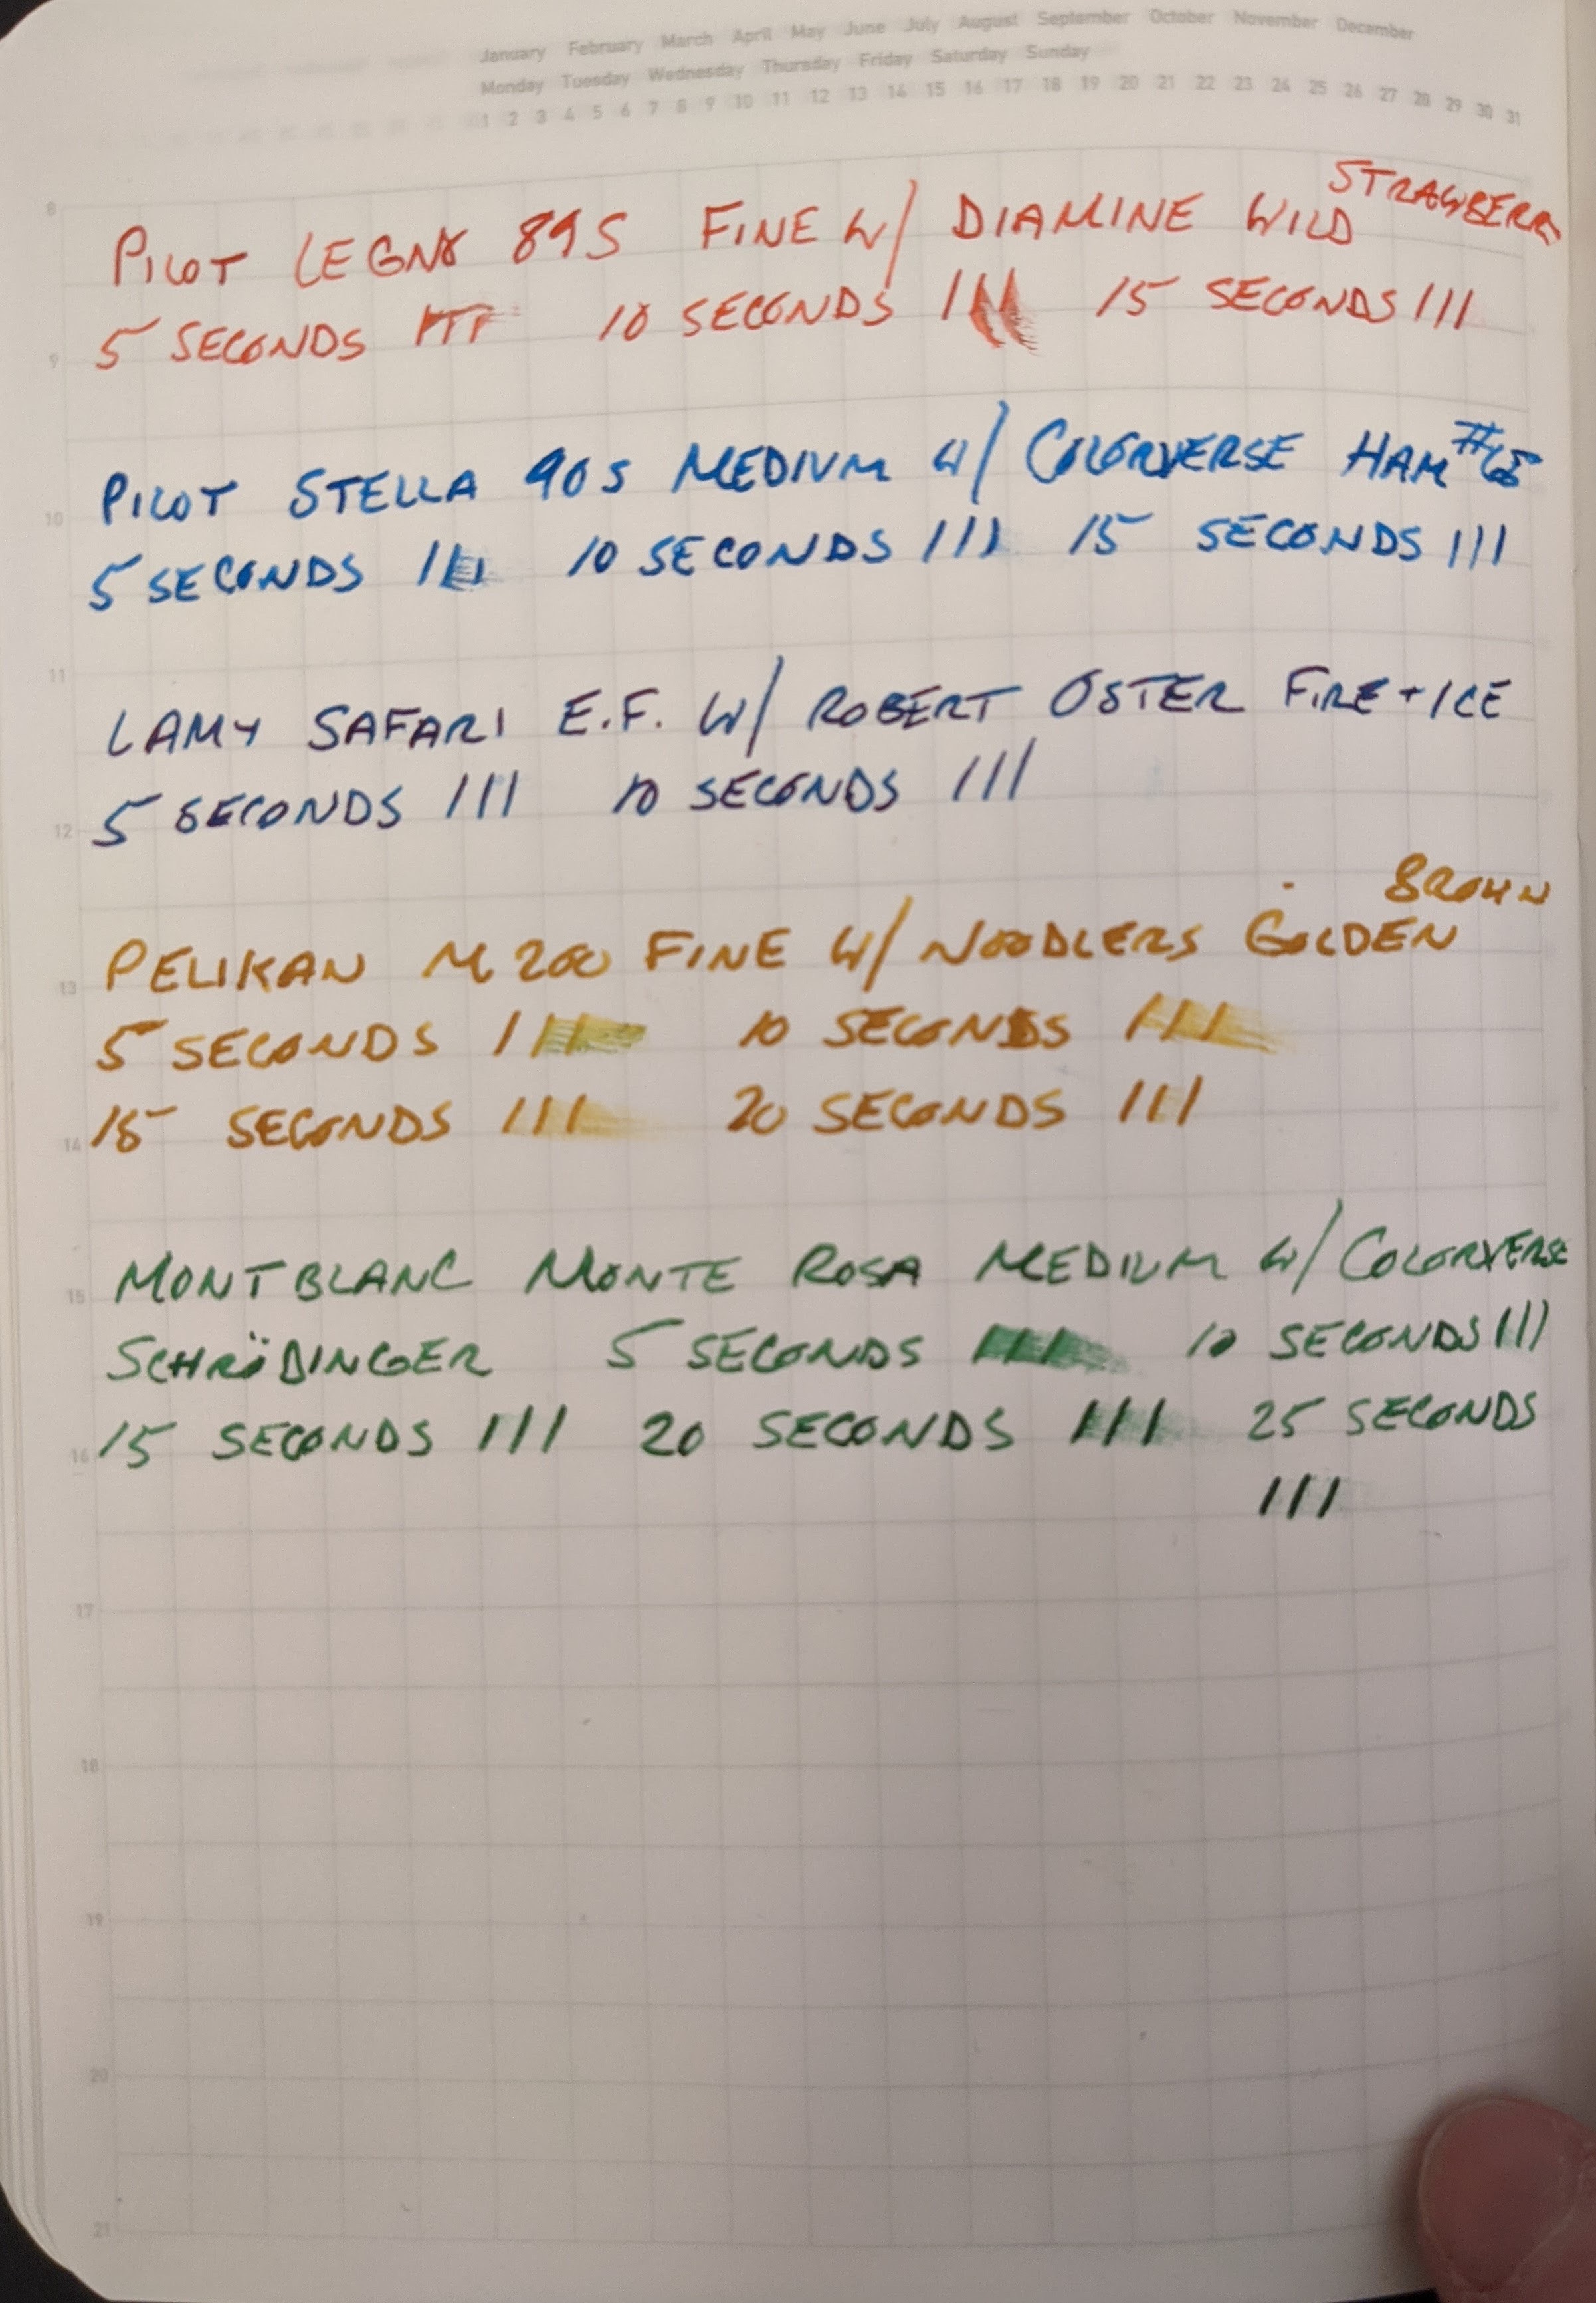 January February March April May June July August September October November December
Monday Tuesday Wednesday Thursday Friday Saturday Sunday
1 2 3 4 5 6 7 8 9 10 11 12 13 14 15 16 17 18 19 20 21 22 23 24 25 26 27 28 29 30 31
8
PILOT LEGNO 89S FINE W/ DIAMINE WILD STRAWBERRY
5 SECONDS III 10 SECONDS III 15 SECONDS III
9
PILOT STELLA 90S MEDIUM W/ COLORVERSE HAM #65
10
5 SECONDS III 10 SECONDS III 15 SECONDS III
11
LAMY SAFARI E.F. W/ ROBERT OSTER FIRE + ICE
5 SECONDS III 10 SECONDS III
12
PELIKAN M200 FINE W/ NOODLERS GOLDEN BROWN
13
5 SECONDS III 10 SECONDS III
15 SECONDS III 20 SECONDS III
14
MONTBLANC MONTE ROSA MEDIUM W/ COLORVERSE
15
SCHRÖDINGER 5 SECONDS III 10 SECONDS III
15 SECONDS III 20 SECONDS III 25 SECONDS
16
III
17
18
19
20
21